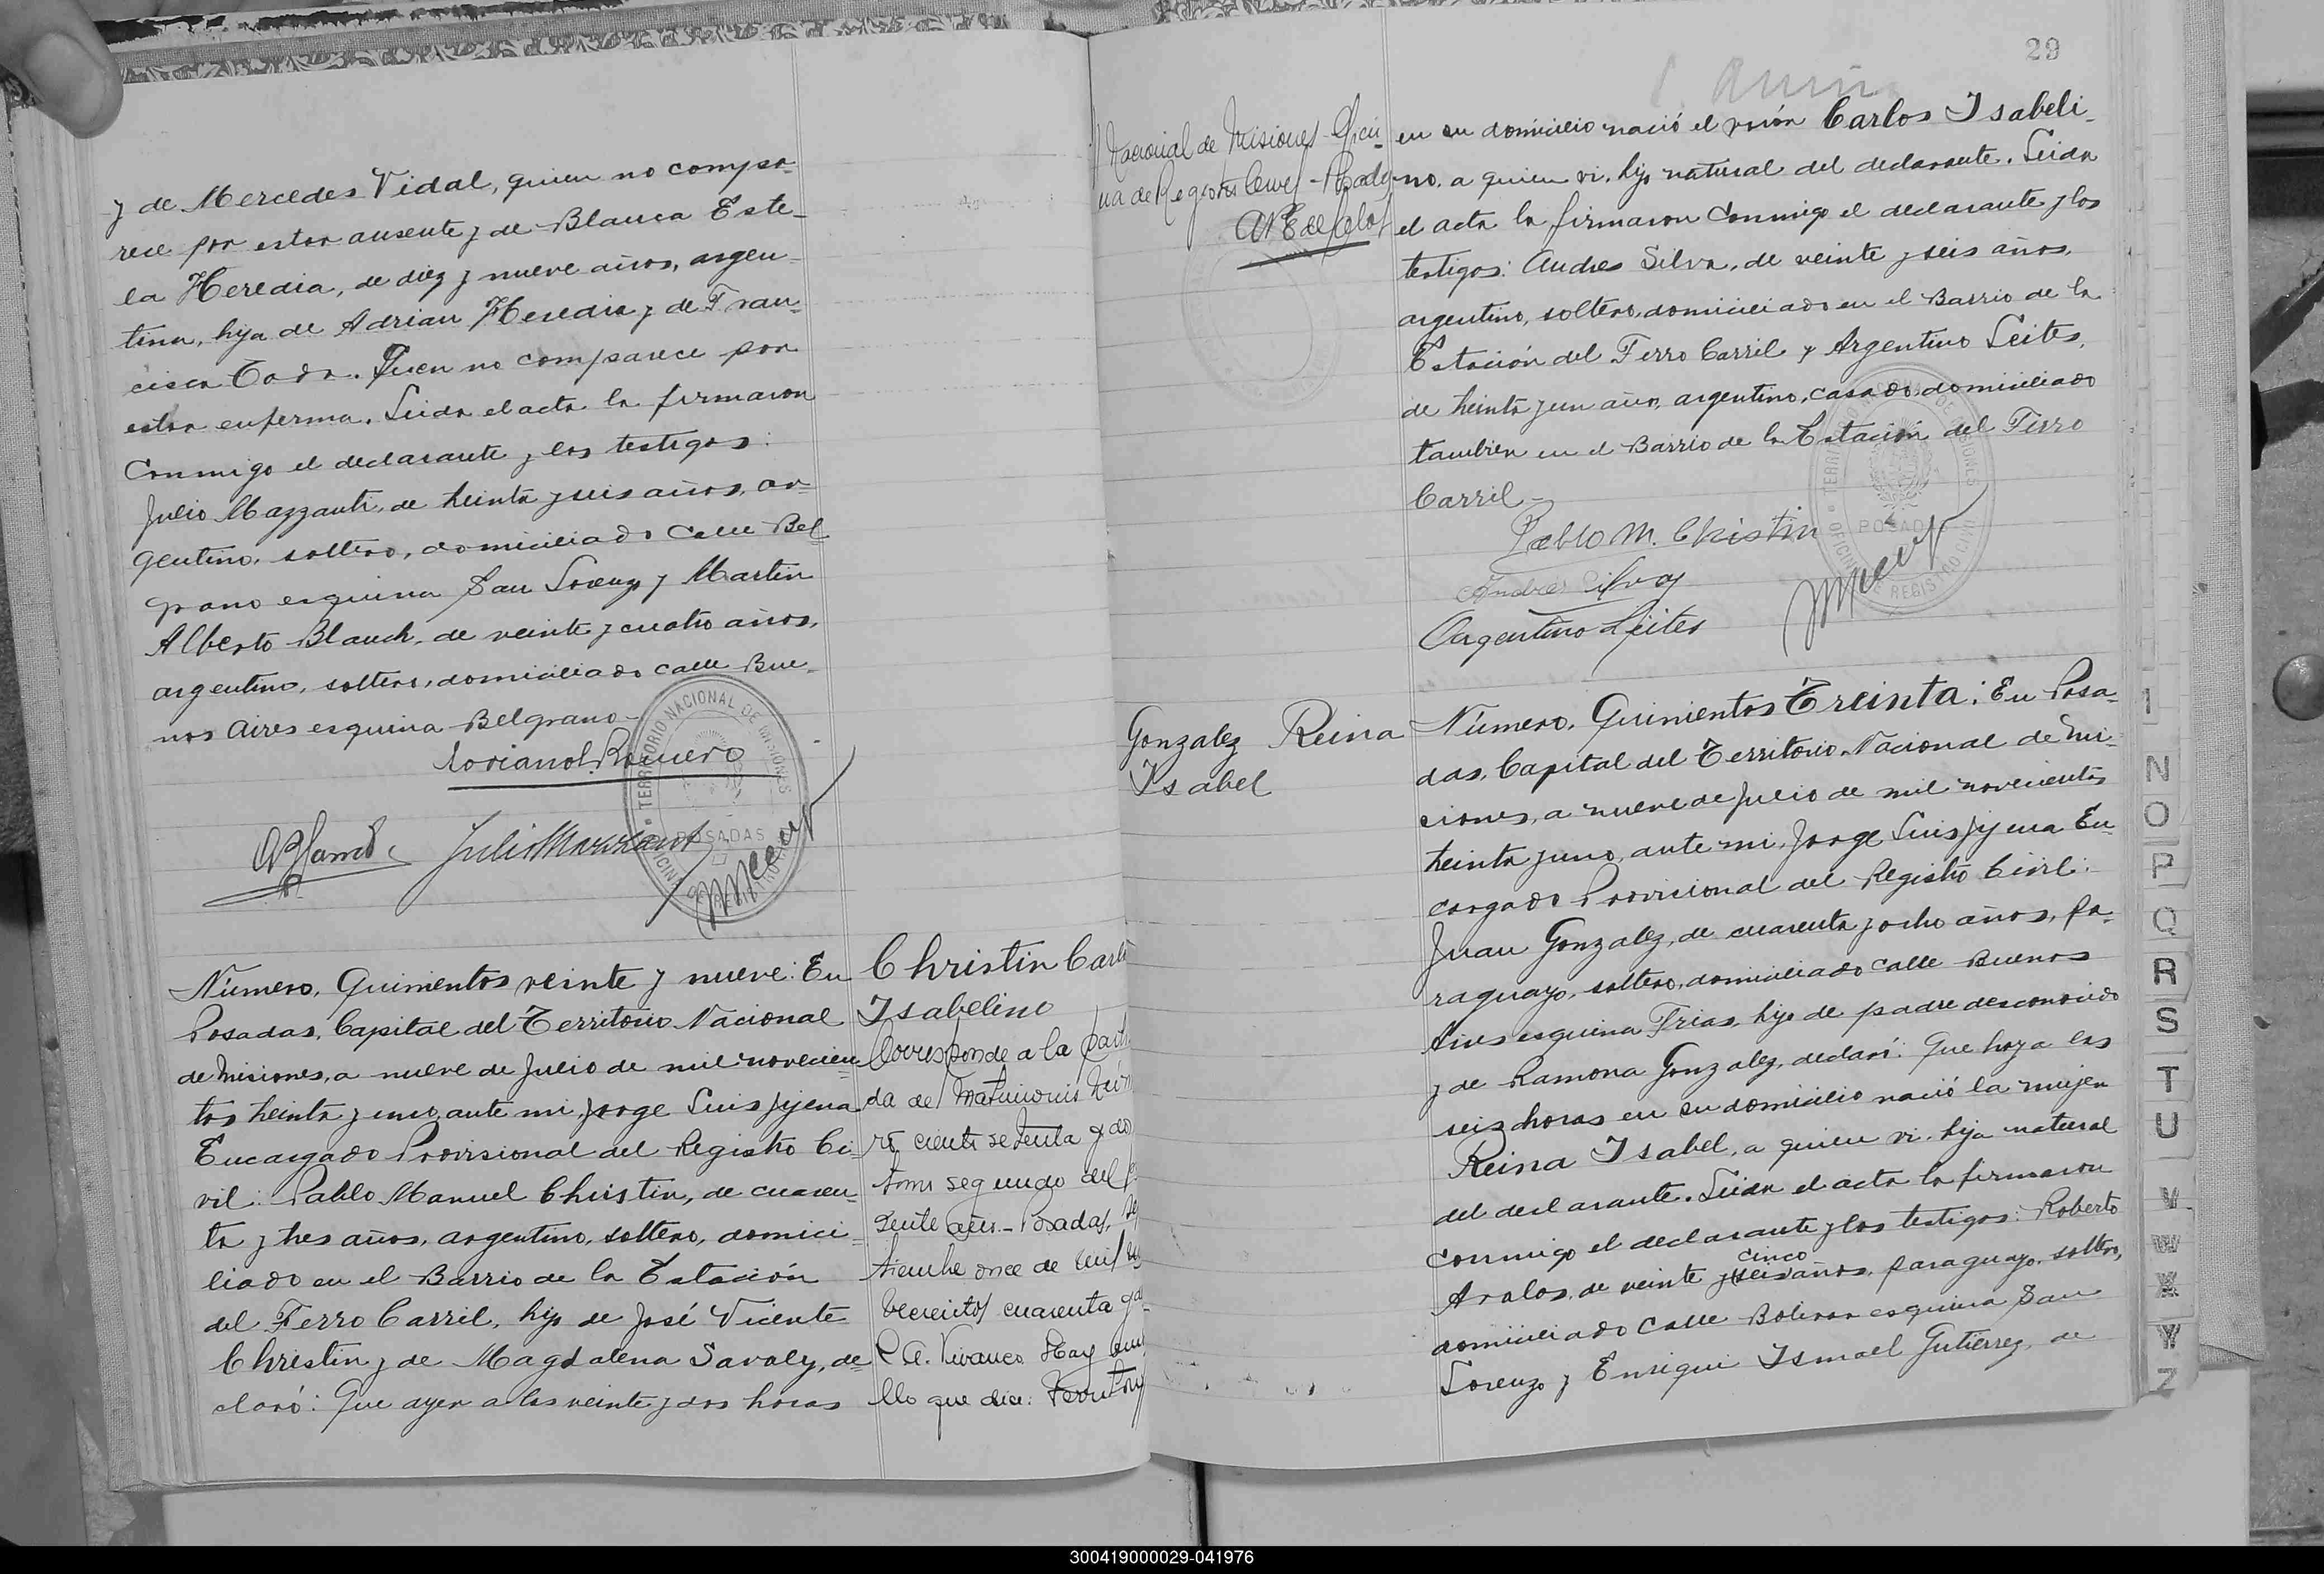 y de Mercedes Vidal, quien no compa-
rece por estar ausente y de Blanca Este-
la Heredia, de diez y nueve años, argen-
tina, hija de Adrian Heredia y de Fran-
cisca Toda. Quien no comparece por
estar enferma. Leida el acta la firmaron
Conmigo el declarante y los testigos:
Julio Mazzanti, de treinta y seis años, ar-
gentino, soltero, domiciliado Calle Bel-
grano esquina San Lorenzo y Martin
Alberto Blanch, de veinte y cuatro años,
argentino, soltero, domiciliado calle Bue-
nos Aires esquina Belgrano-
Romero
TERRITORIO NACIONAL DE MISIONES
POSADAS
OFICINA DE REGISTRO CIVIL
Número, Quinientos veinte y nueve: En
Posadas, Capital del Territorio Nacional
de Misiones, a nueve de Julio de mil novecien-
tos treinta y uno, ante mi, Jorge Luis Jijena
Encargado Provisional del Registro Ci-
vil: Pablo Manuel Christin, de cuaren-
ta y tres años, argentino, soltero, domici-
liado en el Barrio de la Estación
del Ferro Carril, hijo de José Vicente
Christin y de Magdalena Savaly, de-
claró: Que ayer a las veinte y dos horas
Christin Carlo
Isabelino
Corresponde a la parti
da de Matrimonio Núm
ro ciento setenta y do
tomo segundo del p
sente año - Posadas, se
tiembre once de mil no
vecientos cuarenta y
R. A. Vivanco Hay un
llo que dice: Territory
29
Nacional de Misiones Ofici-
na de Registro Civil - Posadas
en su domicilio nació el varón Carlos Isabeli-
no, a quien vi, hijo natural del declarante. Leida
el acta la firmaron Conmigo el declarante y los
testigos: Andres Silva, de veinte y seis años,
argentino, soltero, domiciliado en el Barrio de la
Estación del Ferro Carril y Argentino Leites,
de treinta y un año, argentino, casado, domiciliado
tambien en el Barrio de la Estación del Ferro
Carril-
Pablo M. Christin
Andres Silva
Argentino Leites
TERRITORIO NACIONAL DE MISIONES
POSADAS
OFICINA DE REGISTRO CIVIL
Gonzalez Reina
Isabel
Número, Quinientos Treinta: En Posa-
das, Capital del Territorio Nacional de Mi-
siones, a nueve de Julio de mil novecientos
treinta y uno, ante mi, Jorge Luis Jijena En-
cargado Provisional del Registro Civil:
Juan Gonzalez, de cuarenta y ocho años, pa-
raguayo, soltero, domiciliado calle Buenos
Aires esquina Frias, hijo de padre desconocido
y de Ramona Gonzalez, declaró: Que hoy a las
seis horas en su domicilio nació la mujer
Reina Isabel, a quien vi, hija natural
del declarante. Leida el acta la firmaron
conmigo el declarante y los testigos: Roberto
cinco
Avalos, de veinte y seis años, paraguayo, soltero,
domiciliado Calle Bolivar esquina San
Lorenzo y Enrique Ismael Gutierrez, de
I
N
O
P
Q
R
S
T
U
V
W
X
Y
Z
300419000029-041976